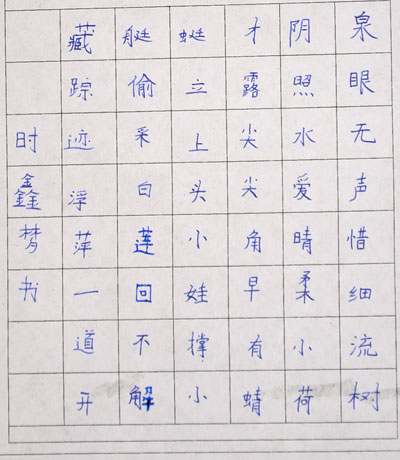 泉眼无声惜细流树
阴照水爱晴柔小荷
才露尖尖角早有蜻
蜓立上头小娃撑小
艇偷采白莲回不解
藏踪迹浮萍一道开
时鑫梦书